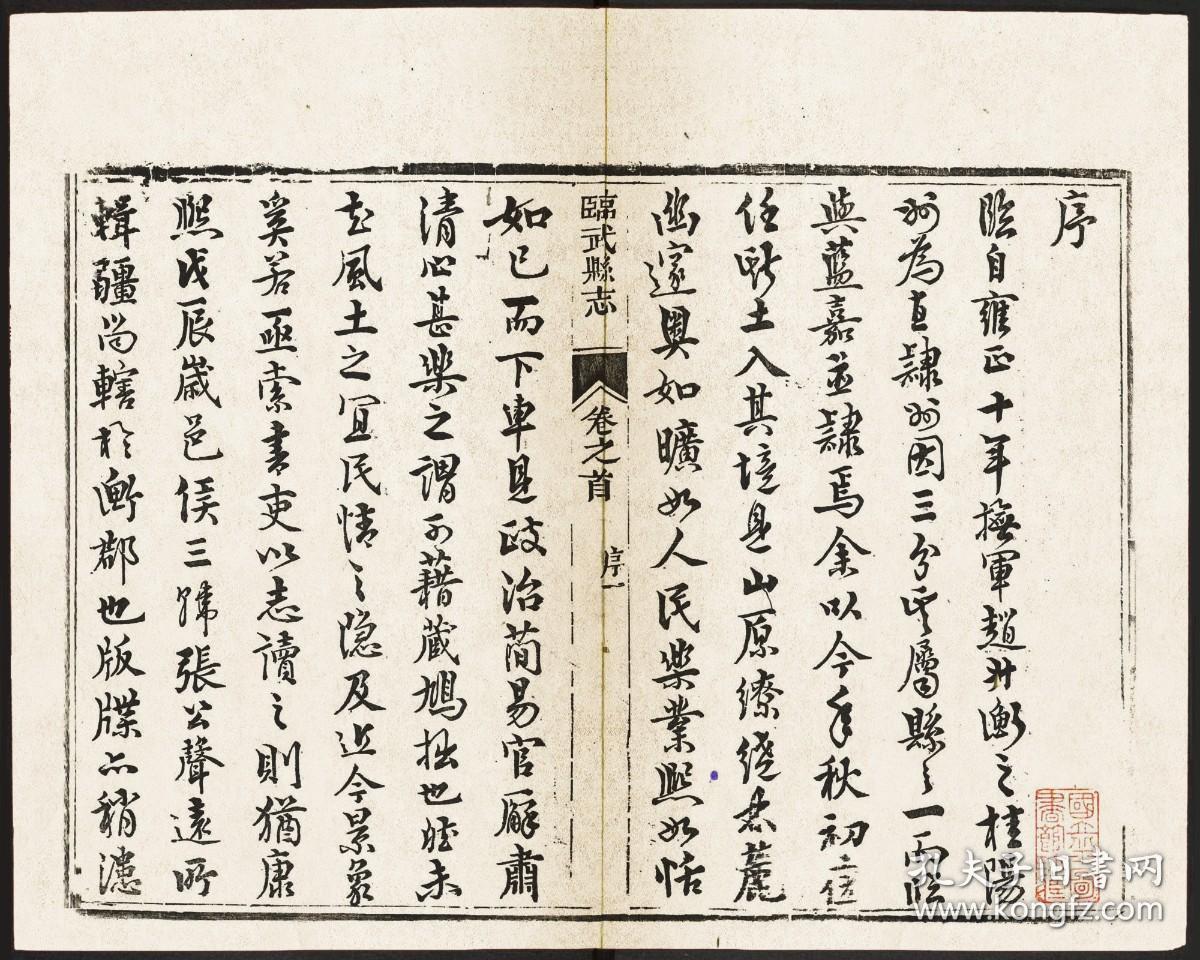 序
臨自雍正十年撫軍趙升衡之桂陽
州為直隸州因三分其屬縣之一而臨
與藍嘉並隸焉余以今年秋初
任斯土入其境見山原繚繞林麓
幽邃奧如曠如人民樂業熙如恬
臨武縣志
卷之首
序一
如已而下車見政治簡易官廨肅
清心甚樂之謂可藉藏鳩拙也然未
知風土之宜民情之隱及近今景象
奚若亟索書吏以志讀之則猶康
熙戊辰歲邑侯三韓張公聲遠所
輯疆尚轄於衡郡也版牒亦稍漶
孔夫子旧书网
www.kongfz.com